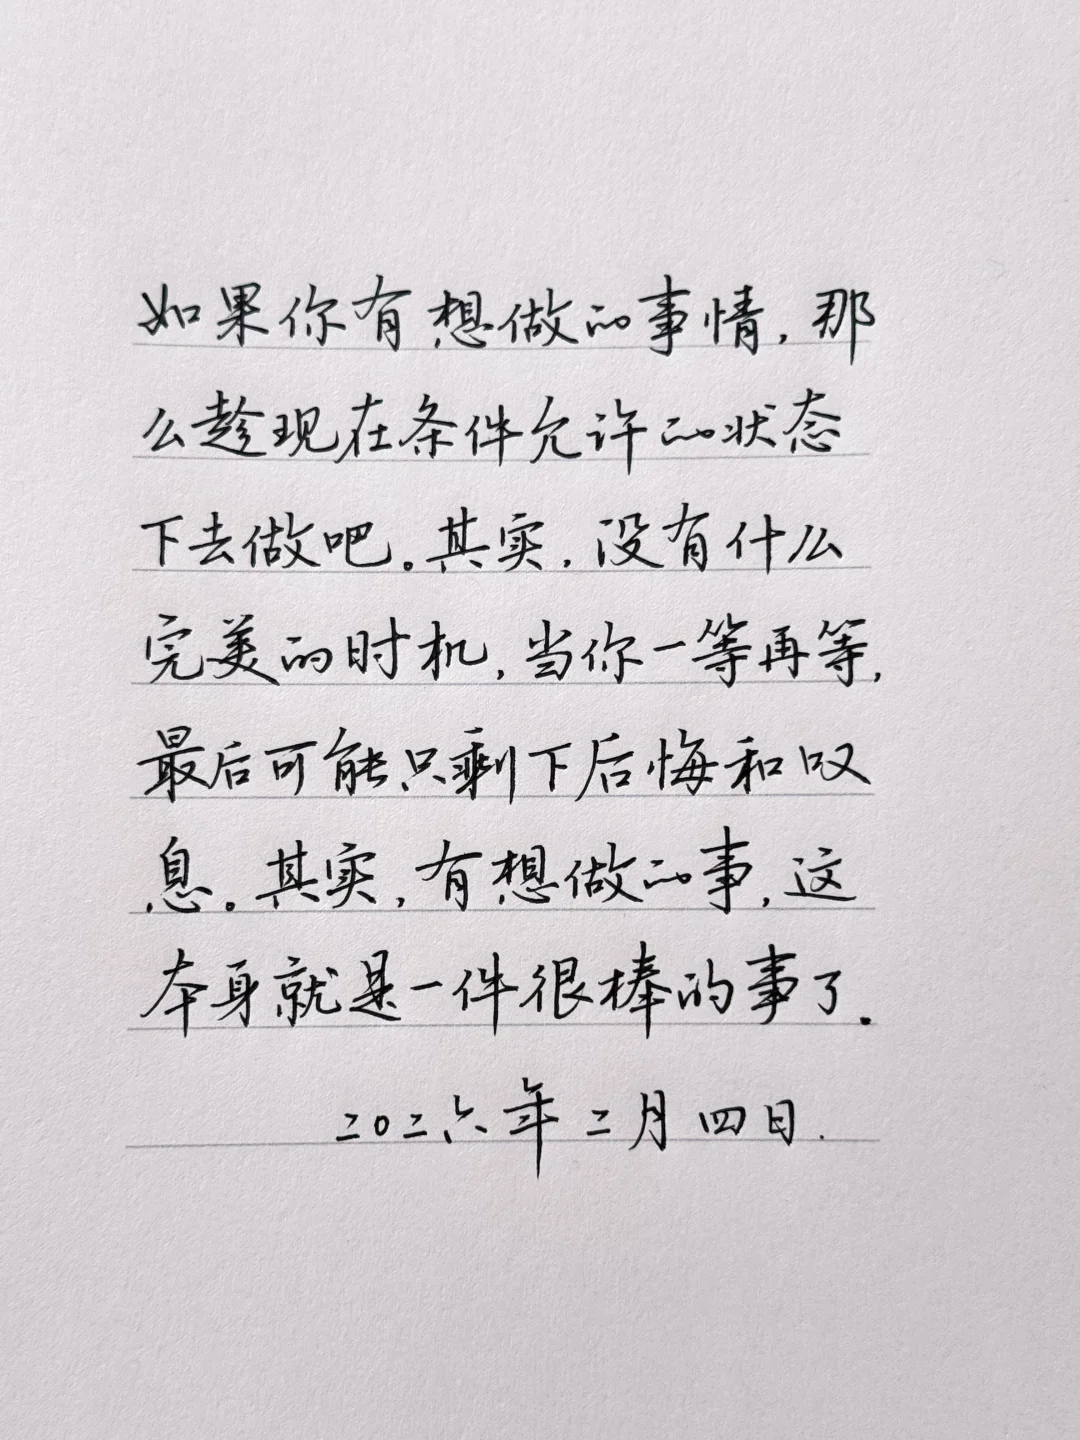 如果你有想做的事情，那
么趁现在条件允许的状态
下去做吧。其实，没有什么
完美的时机，当你一等再等，
最后可能只剩下后悔和叹
息。其实，有想做的事，这
本身就是一件很棒的事了.
二〇二六年二月四日.